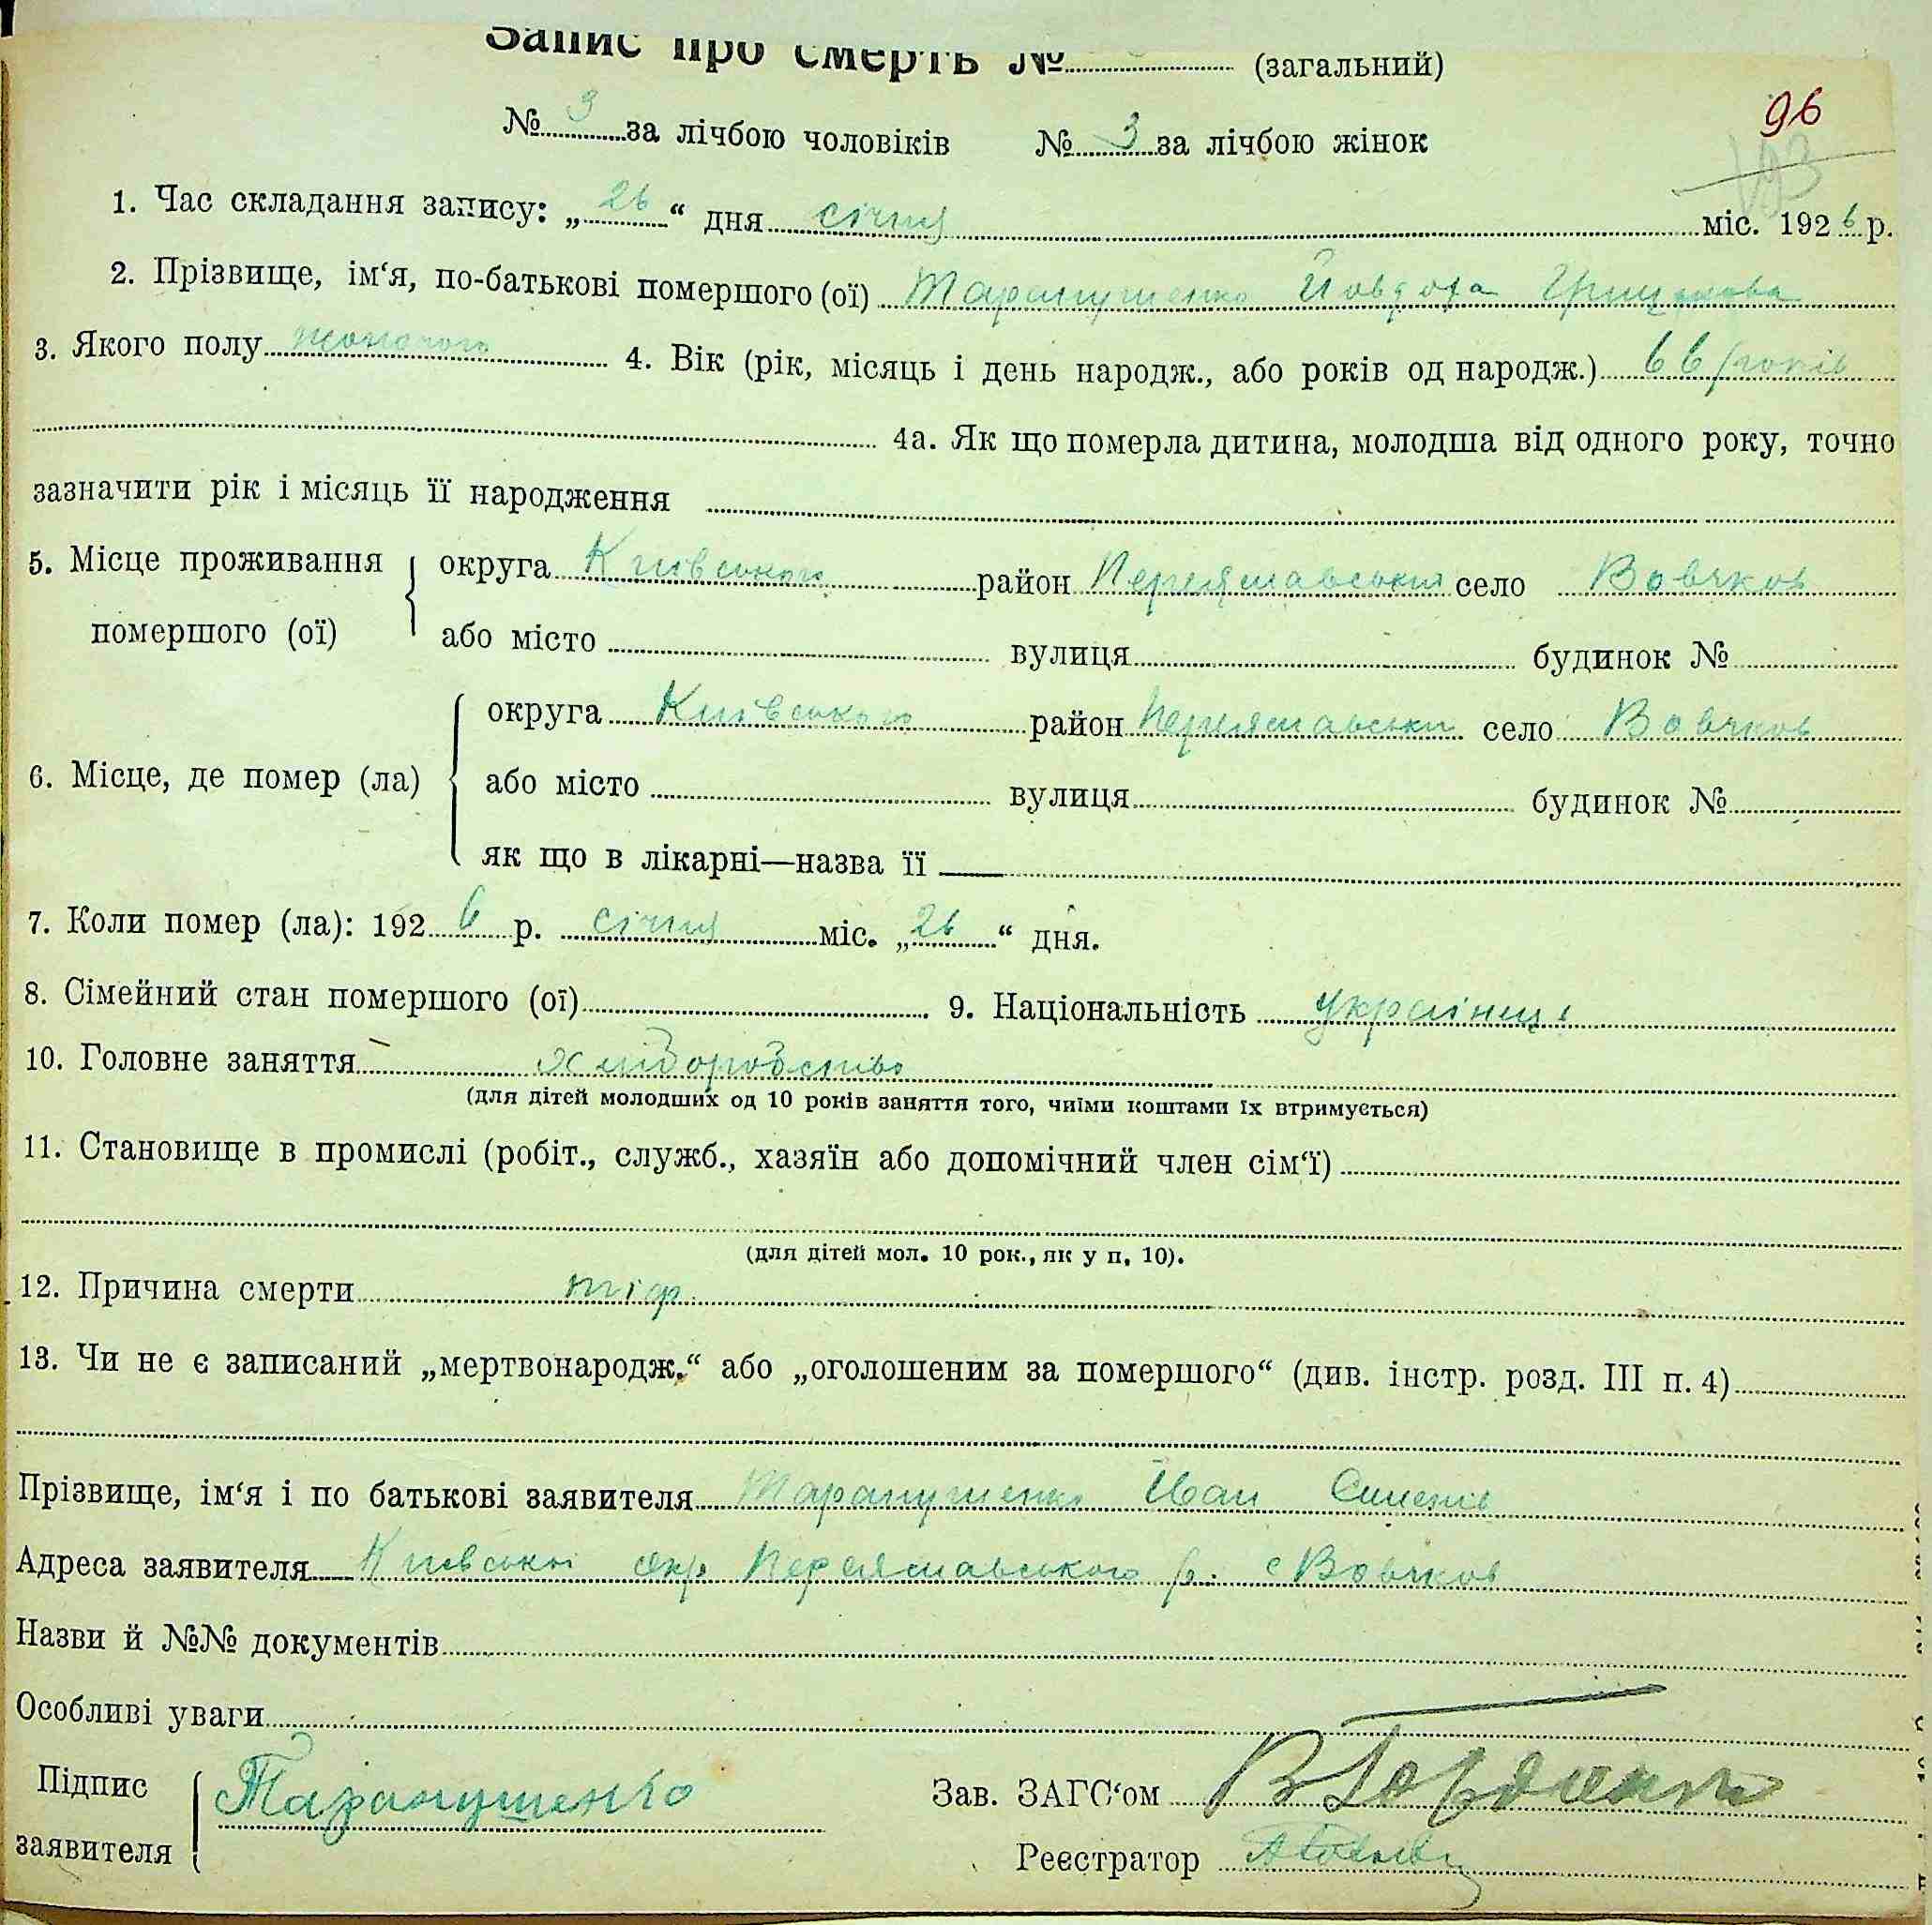 Запис про смерть № (загальний)
96
№ 3 за лічбою чоловіків № 3 за лічбою жінок
193
1. Час складання запису: „26“ дня січня міс. 1926 р.
2. Прізвище, ім‘я, по-батькові помершого (ої) Таранушенко Йовдоха
3. Якого полу жоночого 4. Вік (рік, місяць і день народж., або років од народж.) 66 років
4а. Як що померла дитина, молодша від одного року, точно
зазначити рік і місяць її народження
5. Місце проживання помершого (ої) округа Київського район Переяславський село Вовчков
або місто вулиця будинок №
6. Місце, де помер (ла) округа Київського район Переяславськи село Вовчков
або місто вулиця будинок №
як що в лікарні—назва її
7. Коли помер (ла): 1926 р. січня міс. „26“ дня.
8. Сімейний стан помершого (ої) 9. Національність українц.
10. Головне заняття хліборобство
(для дітей молодших од 10 років заняття того, чиїми коштами їх втримується)
11. Становище в промислі (робіт., служб., хазяїн або допомічний член сім‘ї)
(для дітей мол. 10 рок., як у п. 10).
12. Причина смерти тіф
13. Чи не є записаний „мертвонародж.“ або „оголошеним за помершого“ (див. інстр. розд. III п. 4)
Прізвище, ім‘я і по батькові заявителя Таранушенко Іван
Адреса заявителя Київської окр. Переяславського р. с Вовчков
Назви й №№ документів
Особливі уваги
Підпис заявителя Таранушенко
Зав. ЗАГС‘ом В Гордиенко
Реєстратор